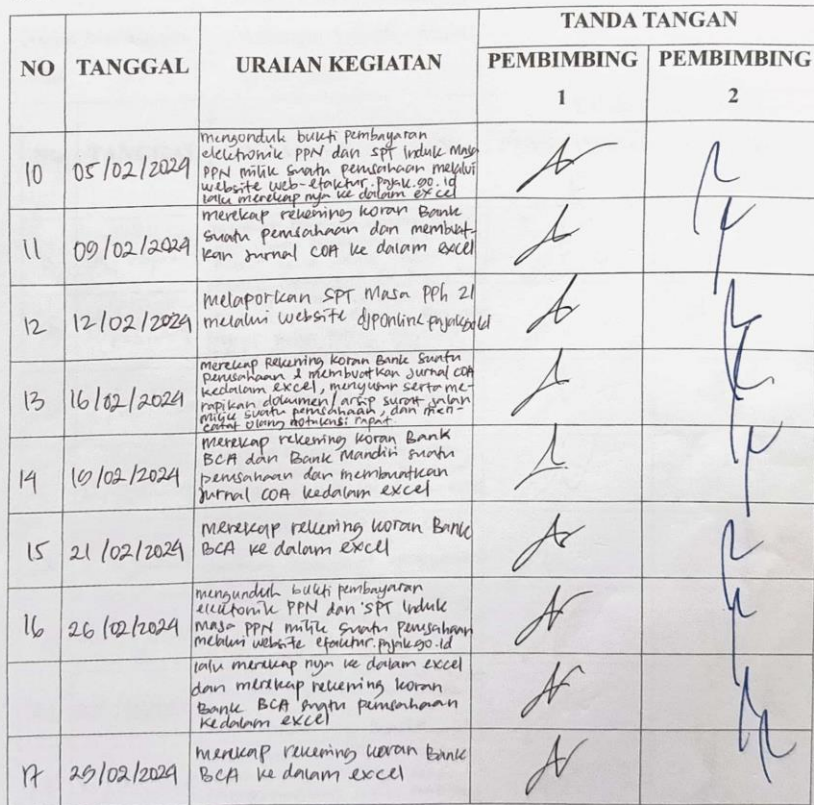 NO TANGGAL URAIAN KEGIATAN TANDA TANGAN
PEMBIMBING 1 PEMBIMBING 2
10 05/02/2024
mengonduk bukti pembayaran
elektronik PPN dan SPT Induk Masa
PPN milik suatu perusahaan melalui
website web-efaktur.pajak.go.id
lalu merekap nya ke dalam excel
11 09/02/2024
merekap rekening koran Bank
suatu perusahaan dan membuat-
kan jurnal COA ke dalam excel
12 12/02/2024
melaporkan SPT Masa PPh 21
melalui website djponline pajak
13 16/02/2024
merekap Rekening koran Bank suatu
perusahaan & membuatkan jurnal COA
kedalam excel, menyusun serta me-
rapikan dokumen/arsip surat jalan
milik suatu perusahaan, dan men-
catat ulang notulensi rapat.
14 19/02/2024
merekap rekening koran Bank
BCA dan Bank Mandiri suatu
perusahaan dan membuatkan
jurnal COA kedalam excel
15 21/02/2024
merekap rekening koran Bank
BCA ke dalam excel
16 26/02/2024
mengunduh bukti pembayaran
elektonik PPN dan SPT Induk
Masa PPN milik suatu perusahaan
melalui website efaktur.pajak.go.id
lalu merekap nya ke dalam excel
dan merekap rekening koran
Bank BCA suatu perusahaan
kedalam excel
17 29/02/2024
merekap rekening koran Bank
BCA ke dalam excel